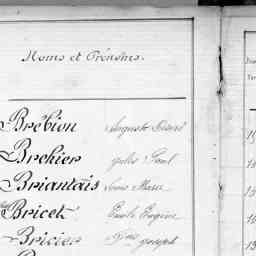 Noms et Prénoms.
Brébion Auguste Désiré
Brehier Jules Paul
Briantais Louis Marie
Bricet Emile Eugène
Bricier Joseph